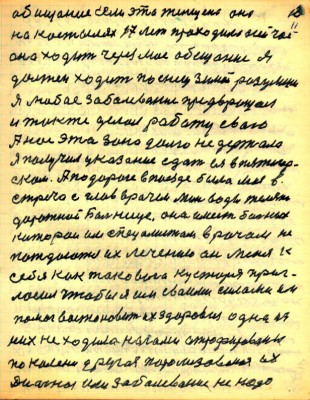 обищание Если эта женщена она
на костылях 17 лет проходила
она ходит через мое обещание Я
должен ходит по снегу зимой разувши
Я любое заболевание предвращал
и также делал работу сваю
Аное эта зоно долго не держало
Я получил указание сдат ся в пятигор-
ском. А подороге в поезде была моя в.
стреча с глав врачом Мин воды желез
дорожной Больнице, она имеет больных
которои им специалистам врачам не
поддаются их лечению он меня к
себя как такового кустаря приг-
ласил чтобы я им своими силами им
помог востоновит их здоровия одна из
них не ходила ногами отрофированы
по колени другая порализованоя их
Диагноз или заболевание не надо